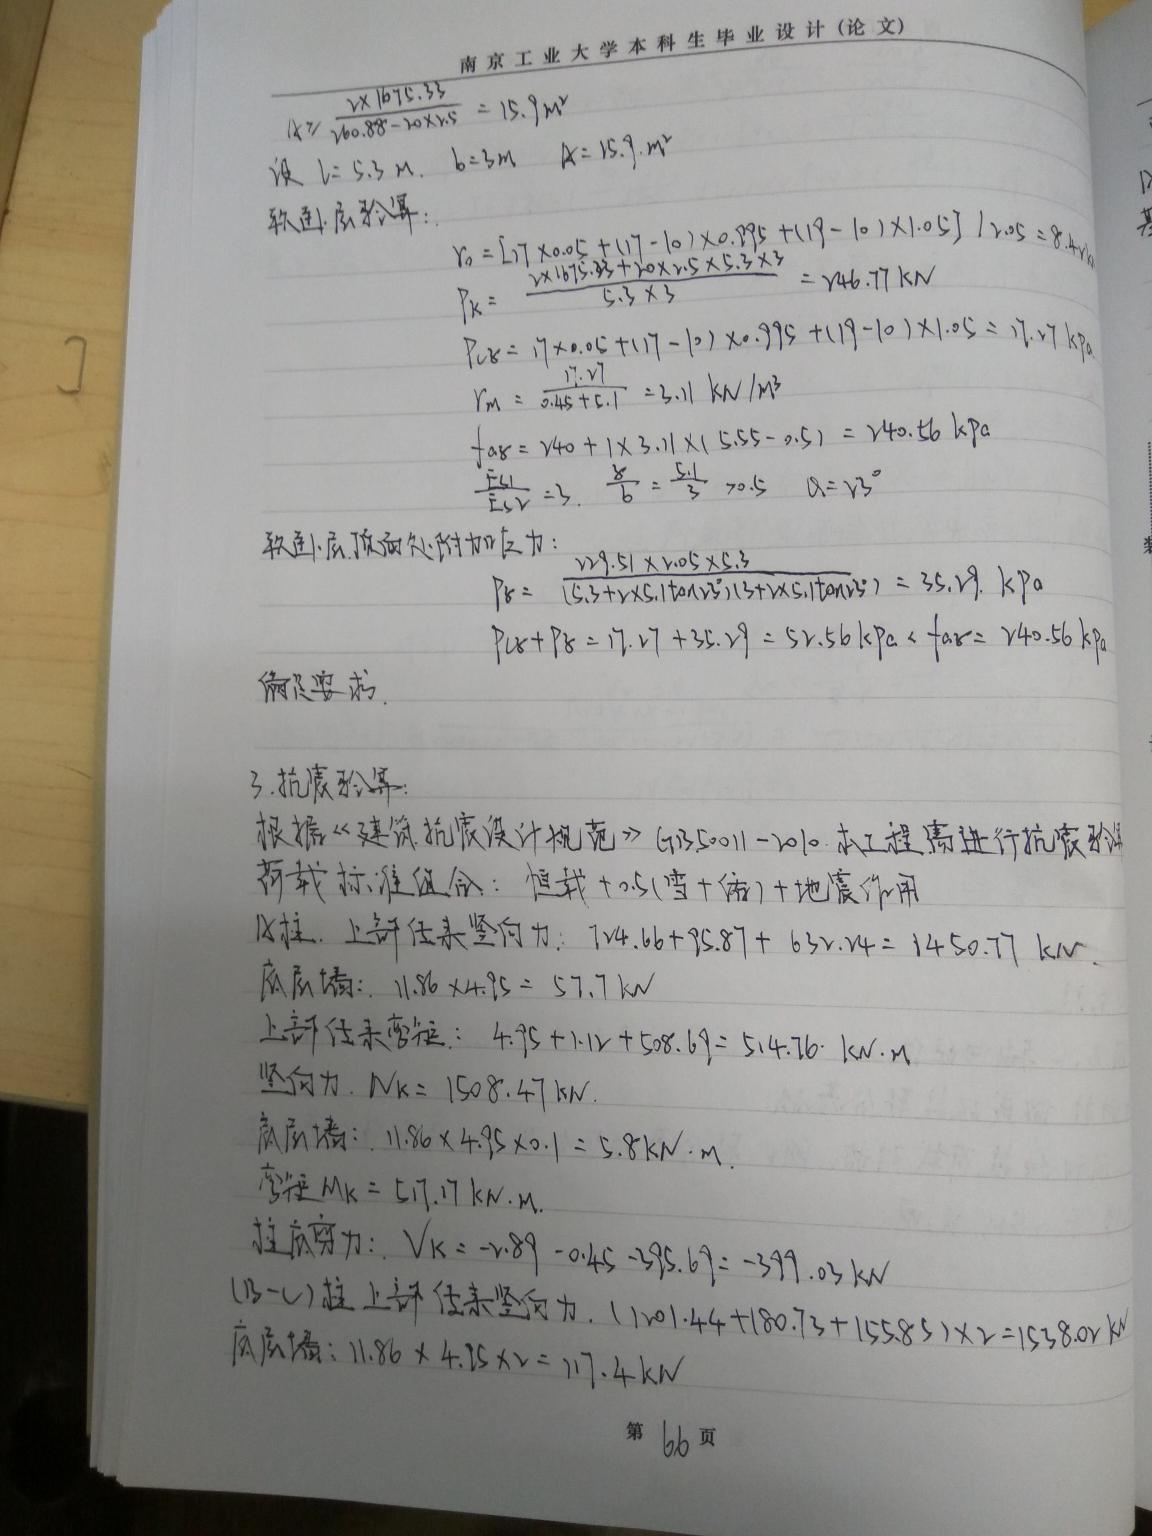 南京工业大学本科生毕业设计(论文)
A≥ 2×1675.33 / 260.88-20×2.5 = 15.9m²
设 l=5.3m. b=3m A=15.9.m²
软卧层验算:
r₀=[17×0.05+(17-10)×0.995+(19-10)×1.05]/2.05=8.42
Pk= 2×1675.33+20×2.5×5.3×3 / 5.3×3 =246.77KN
Pcz=17×0.05+(17-10)×0.995+(19-10)×1.05=17.27kpa
rm= 17.27 / 0.45+5.1 =3.11 KN/m³
faz=240+1×3.11×(5.55-0.5)=240.56kpa
Es1/Es2=3. z/b=5.1/3>0.5 Q=23°
软卧层顶面处附加应力:
Pz= 229.51×2.05×5.3 / (5.3+2×5.1tan23°)(3+2×5.1tan23°) =35.29. kPa
Pcz+Pz=17.27+35.29=52.56kPa<faz=240.56kpa
满足要求.
3.抗震验算:
根据《建筑抗震设计规范》GB50011-2010.本工程需进行抗震验算
荷载标准组合: 恒载+0.5(雪+活)+地震作用
A柱. 上部传来竖向力: 724.66+95.87+632.24=1450.77 KN.
底层墙: 11.86×4.95=57.7KN
上部传来弯矩: 4.95+1.12+508.69=514.76. KN.m
竖向力. Nk=1508.47KN.
底层墙: 11.86×4.95×0.1=5.8KN.m.
弯矩Mk=517.17KN.m.
柱底剪力: Vk=-2.89-0.45-395.69=-399.03KN
(B-C)柱上部传来竖向力.(1201.44+180.73+155.85)×2=1538.02KN
底层墙:11.86×4.95×2=117.4KN
第 66 页